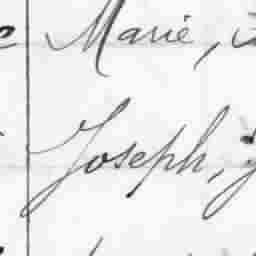 Marie,
Joseph,